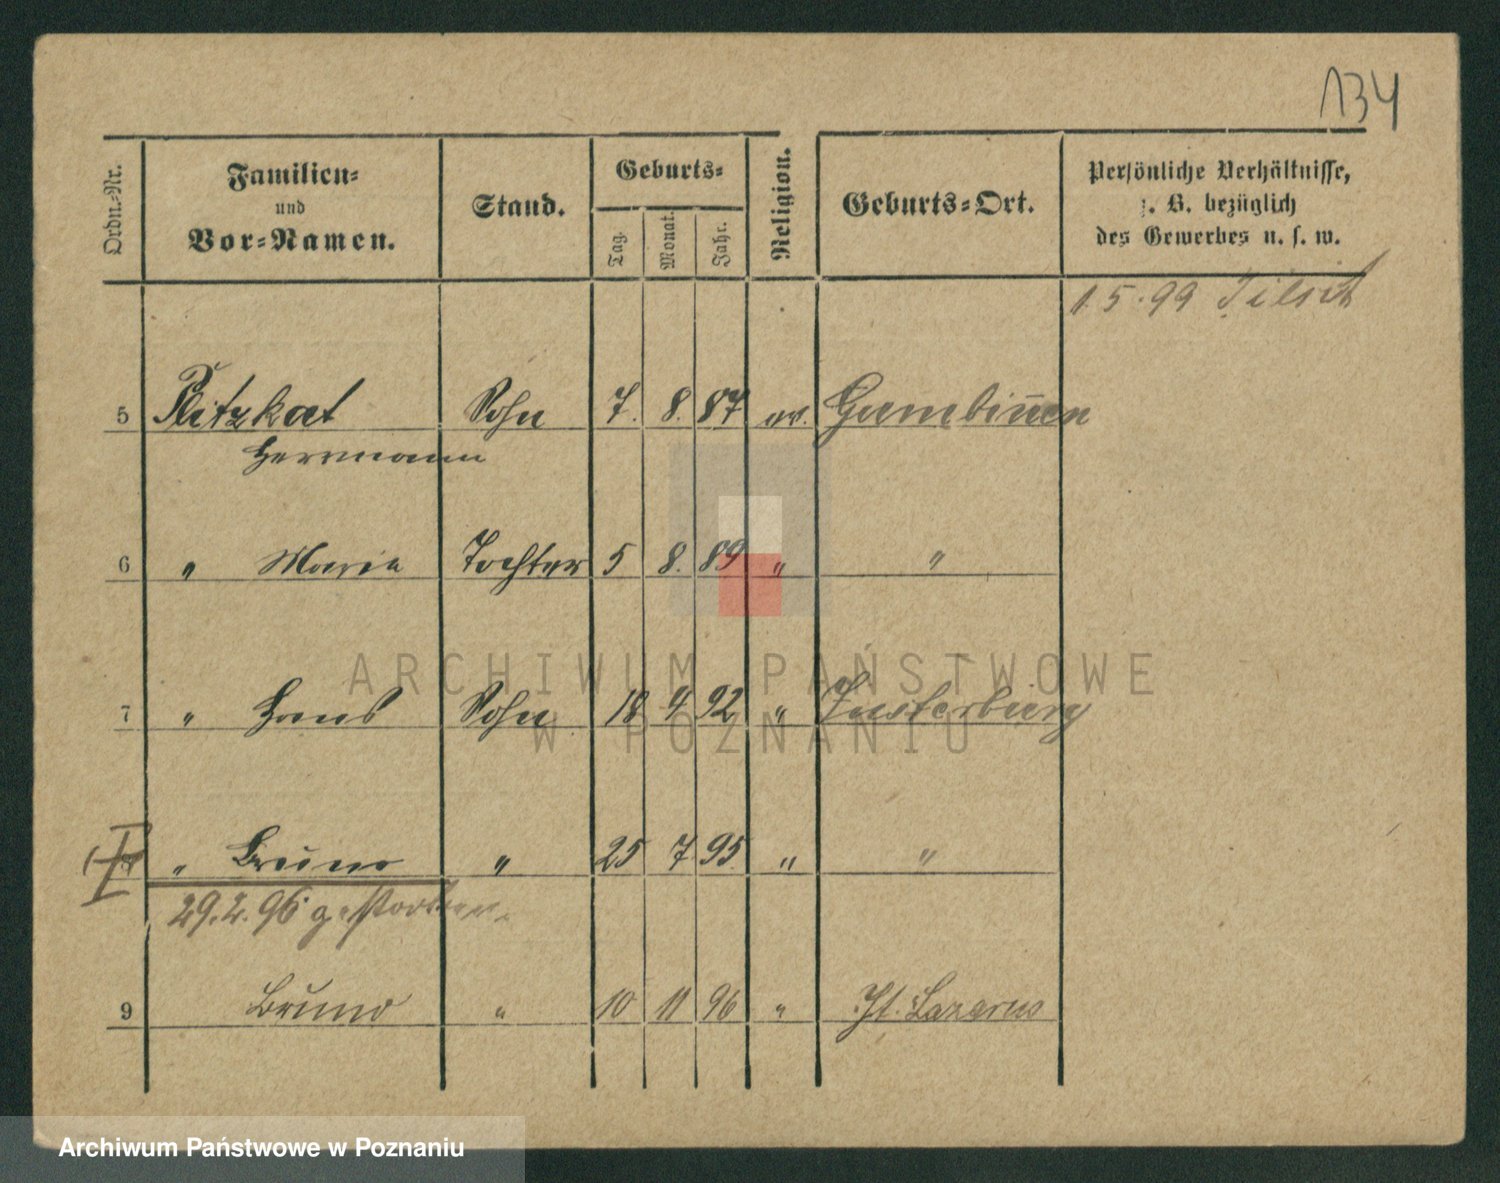 134
Ordn.-Nr. Familien- und Vor-Namen. Stand. Geburts- Tag. Monat. Jahr. Religion. Geburts-Ort. Persönliche Verhältnisse, z. B. bezüglich des Gewerbes u. s. w.
1.5.99 Tilsit
5 Plitzkat Sohn 7. 8. 87 ev. Gumbinnen
Herrmann
6 " Maria Tochter 5 8. 89 " "
7 " Hans Sohn 18 9 92 " Insterburg
" Bruno " 25 7 95 " "
29.2.96 gestorben.
9 Bruno " 10 11 96 " St. Lazarus
ARCHIWUM PAŃSTWOWE
W POZNANIU
Archiwum Państwowe w Poznaniu